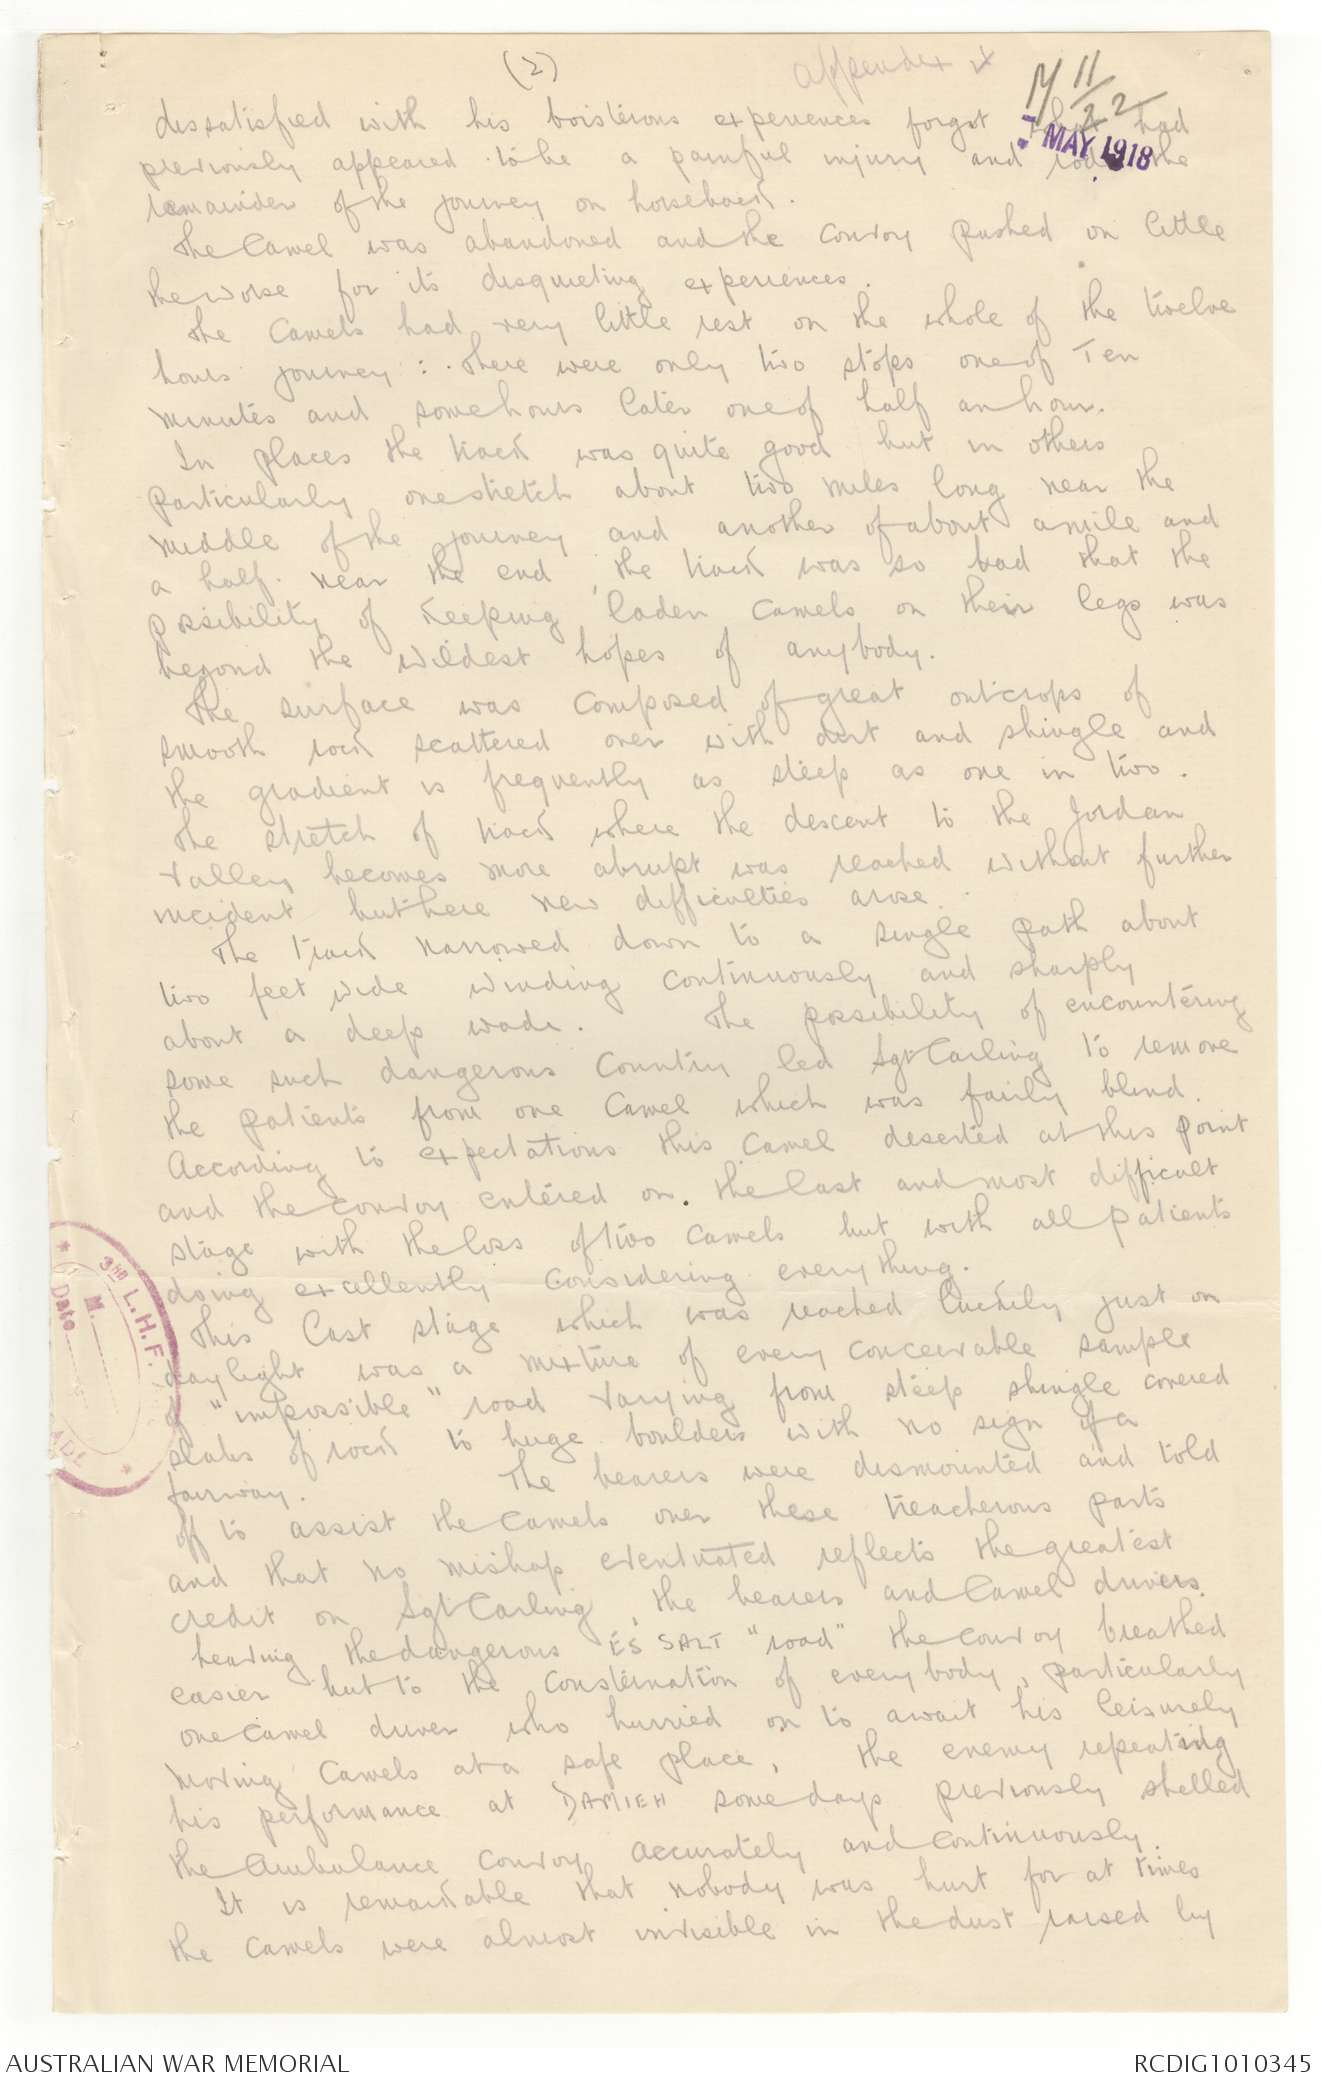 (2)
appendix
M 11/22
MAY 1918
dissatisfied with his boisterous experiences forgot what had
previously appeared to be a painful injury and rode the
remainder of the journey on horseback.
The Camel was abandoned and the Convoy pushed on little
the worse for its disquieting experiences.
The Camels had very little rest on the whole of the twelve
hours journey: There were only two stops one of Ten
minutes and some hours later one of half an hour.
In places the track was quite good but in others
particularly one stretch about two miles long near the
middle of the journey and another of about a mile and
a half near the end, the track was so bad that the
possibility of keeping laden camels on their legs was
beyond the wildest hopes of anybody.
The surface was composed of great outcrops of
smooth rock scattered over with dirt and shingle and
the gradient is frequently as steep as one in two.
The stretch of track where the descent to the Jordan
Valley becomes more abrupt was reached without further
incident but here new difficulties arose.
The track narrowed down to a single path about
two feet wide winding continuously and sharply
about a deep wadi. The possibility of encountering
some such dangerous Country led Sgt Carling to remove
the patients from one Camel which was fairly blind.
According to expectations this Camel deserted at this point
and the convoy entered on the last and most difficult
stage with the loss of two camels but with all patients
doing excellently considering everything.
This last stage which was reached luckily just on
daylight was a mixture of every conceivable sample
of "impossible" road varying from steep shingle covered
slabs of rock to huge boulders with no sign of a
fairway. The bearers were dismounted and told
off to assist the camels over these treacherous parts
and that no mishap eventuated reflects the greatest
credit on Sgt Carling, the bearers and Camel drivers.
Leaving the dangerous ES SALT "road" the convoy breathed
easier but to the consternation of everybody, particularly
one camel driver who hurried on to await his leisurely
moving Camels at a safe place, the enemy repeating
his performance at DAMIEH some days previously shelled
the Ambulance convoy accurately and continuously.
It is remarkable that nobody was hurt for at times
the camels were almost invisible in the dust raised by
3RD L.H.F.
M.
Date
AUSTRALIAN WAR MEMORIAL
RCDIG1010345